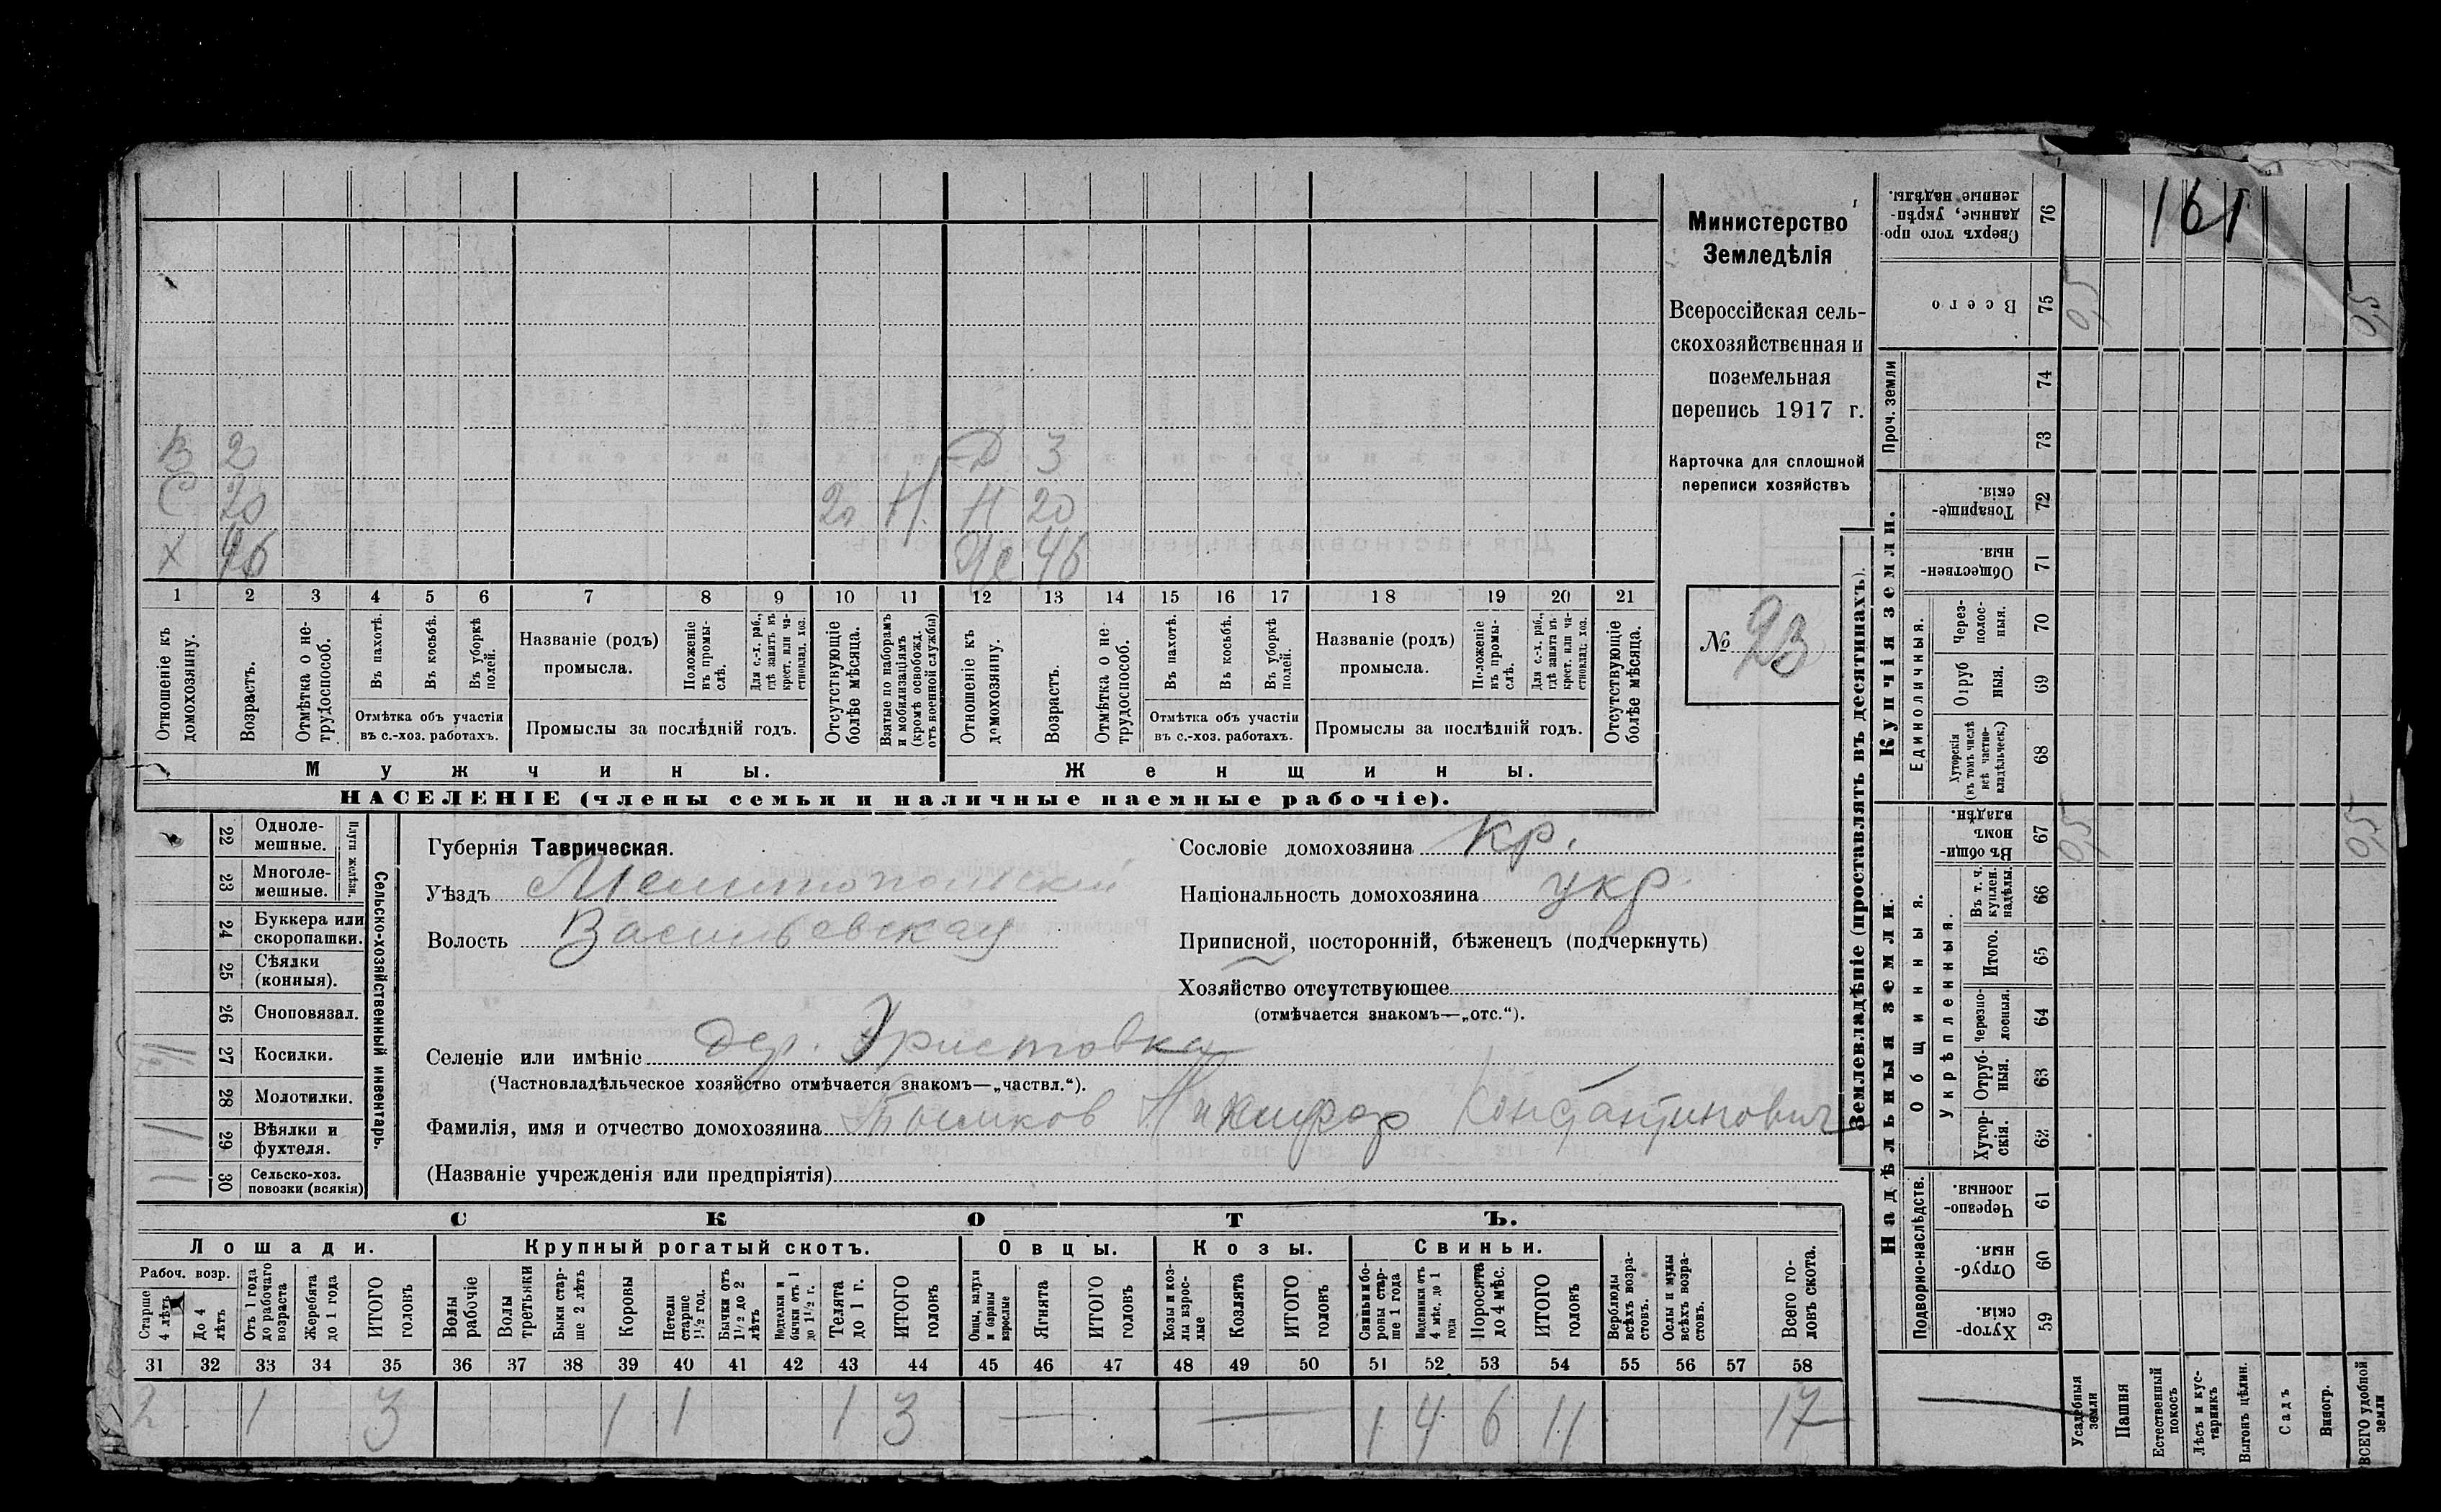 161
Министерство
Земледѣлія
Всероссійская сель-
скохозяйственная и
поземельная
перепись 1917 г.
Карточка для сплошной
переписи хозяйствъ
№ 93
В 2 Д 3
С 20 20 Н. Н 20
Х 46 Же 46
1 2 3 4 5 6 7 8 9 10 11 12 13 14 15 16 17 18 19 20 21
Отношеніе къ домохозяину.
Возрастъ.
Отмѣтка о не-трудоспособ.
Въ пахотѣ.
Въ косьбѣ.
Въ уборкѣ полей.
Отмѣтка объ участіи
въ с.-хоз. работахъ.
Названіе (родъ)
промысла.
Положеніе въ промы-слѣ.
Для с.-х. раб., гдѣ занятъ въ крест. или ча-стновлад. хоз.
Промыслы за послѣдній годъ.
Отсутствующіе болѣе мѣсяца.
Взятые по наборамъ и мобилизаціямъ (кромѣ освобожд. отъ военной службы)
Отношеніе къ домохозяину.
Возрастъ.
Отмѣтка о не трудоспособ.
Въ пахотѣ.
Въ косьбѣ.
Въ уборкѣ полей.
Отмѣтка объ участіи
въ с.-хоз. работахъ.
Названіе (родъ)
промысла.
Положеніе въ промы-слѣ.
Для с.-х. раб., гдѣ занята въ крест. или ча-стновлад. хоз.
Промыслы за послѣдній годъ.
Отсутствующіе болѣе мѣсяца.
Мужчины. Женщины.
НАСЕЛЕНІЕ (члены семьи и наличные наемные рабочіе).
Сельско-хозяйственный инвентарь.
Плуги желѣзн.
22 Одноле-мешные.
23 Многоле-мешные.
24 Буккера или скоропашки.
25 Сѣялки (конныя).
26 Сноповязал.
27 Косилки.
28 Молотилки.
1 29 Вѣялки и фухтеля.
1 30 Сельско-хоз. повозки (всякія)
Губернія Таврическая.
Уѣздъ Мелитопольскій
Волость Васильевская
Сословіе домохозяина кр.
Національность домохозяина укр.
Приписной, посторонній, бѣженецъ (подчеркнуть)
Хозяйство отсутствующее
(отмѣчается знакомъ—„отс.“).
Селеніе или имѣніе дер. Христовка
(Частновладѣльческое хозяйство отмѣчается знакомъ—„частвл.“).
Фамилія, имя и отчество домохозяина Никифор Константинович
(Названіе учрежденія или предпріятія)
СКОТЪ.
Лошади. Крупный рогатый скотъ. Овцы. Козы. Свиньи.
Рабоч. возр.
Старше 4 лѣтъ
До 4 лѣтъ
Отъ 1 года до рабочаго возраста
Жеребята до 1 года
ИТОГО головъ
Волы рабочіе
Волы третьяки
Быки стар-ше 2 лѣтъ
Коровы
Нетели старше 1½ год.
Бычки отъ 1½ до 2 лѣтъ
Подтелки и бычки отъ 1 до 1½ г.
Телята до 1 г.
ИТОГО головъ
Овцы, валухи и бараны взрослые
Ягнята
ИТОГО головъ
Козы и коз-лы взрос-лые
Козлята
ИТОГО головъ
Свиньи и бо-ровы стар-ше 1 года
Подсвинки отъ 4 мѣс. до 1 года
Поросята до 4 мѣс.
ИТОГО головъ
Верблюды всѣхъ возра-стовъ.
Ослы и мулы всѣхъ возра-стовъ.
Всего го-ловъ скота.
31 32 33 34 35 36 37 38 39 40 41 42 43 44 45 46 47 48 49 50 51 52 53 54 55 56 57 58
2 1 3 1 1 1 3 — — 1 4 6 11 17
Землевладѣніе (проставлять въ десятинахъ).
Надѣльныя земли. Купчія земли. Проч. земли
Подворно-наслѣдств.
Общинныя.
Укрѣпленныя.
Единоличныя.
Сверхъ того про-данные, укрѣп-ленные надѣлы. 76
Всего 75 0,5 0,5
74
73
Товарище-скія. 72
Обществен-ныя. 71
Через-полос-ныя. 70
Отруб ныя. 69
Хуторскія (въ томъ числѣ всѣ частно-владѣльческ.) 68
Въ общи-номъ владѣн. 67 0,5 0,5
Въ т. ч. куплен. надѣлы. 66
Итого. 65
Черезпо-лосныя. 64
Отруб-ныя. 63
Хутор-скія. 62
Черезпо-лосныя. 61
Отруб-ныя. 60
Хутор-скія. 59
Усадебныя земли
Пашня
Естественный покосъ
Лѣсъ и кус-тарникъ
Выгонъ цѣлин.
Садъ
Виногр.
ВСЕГО удобной земли